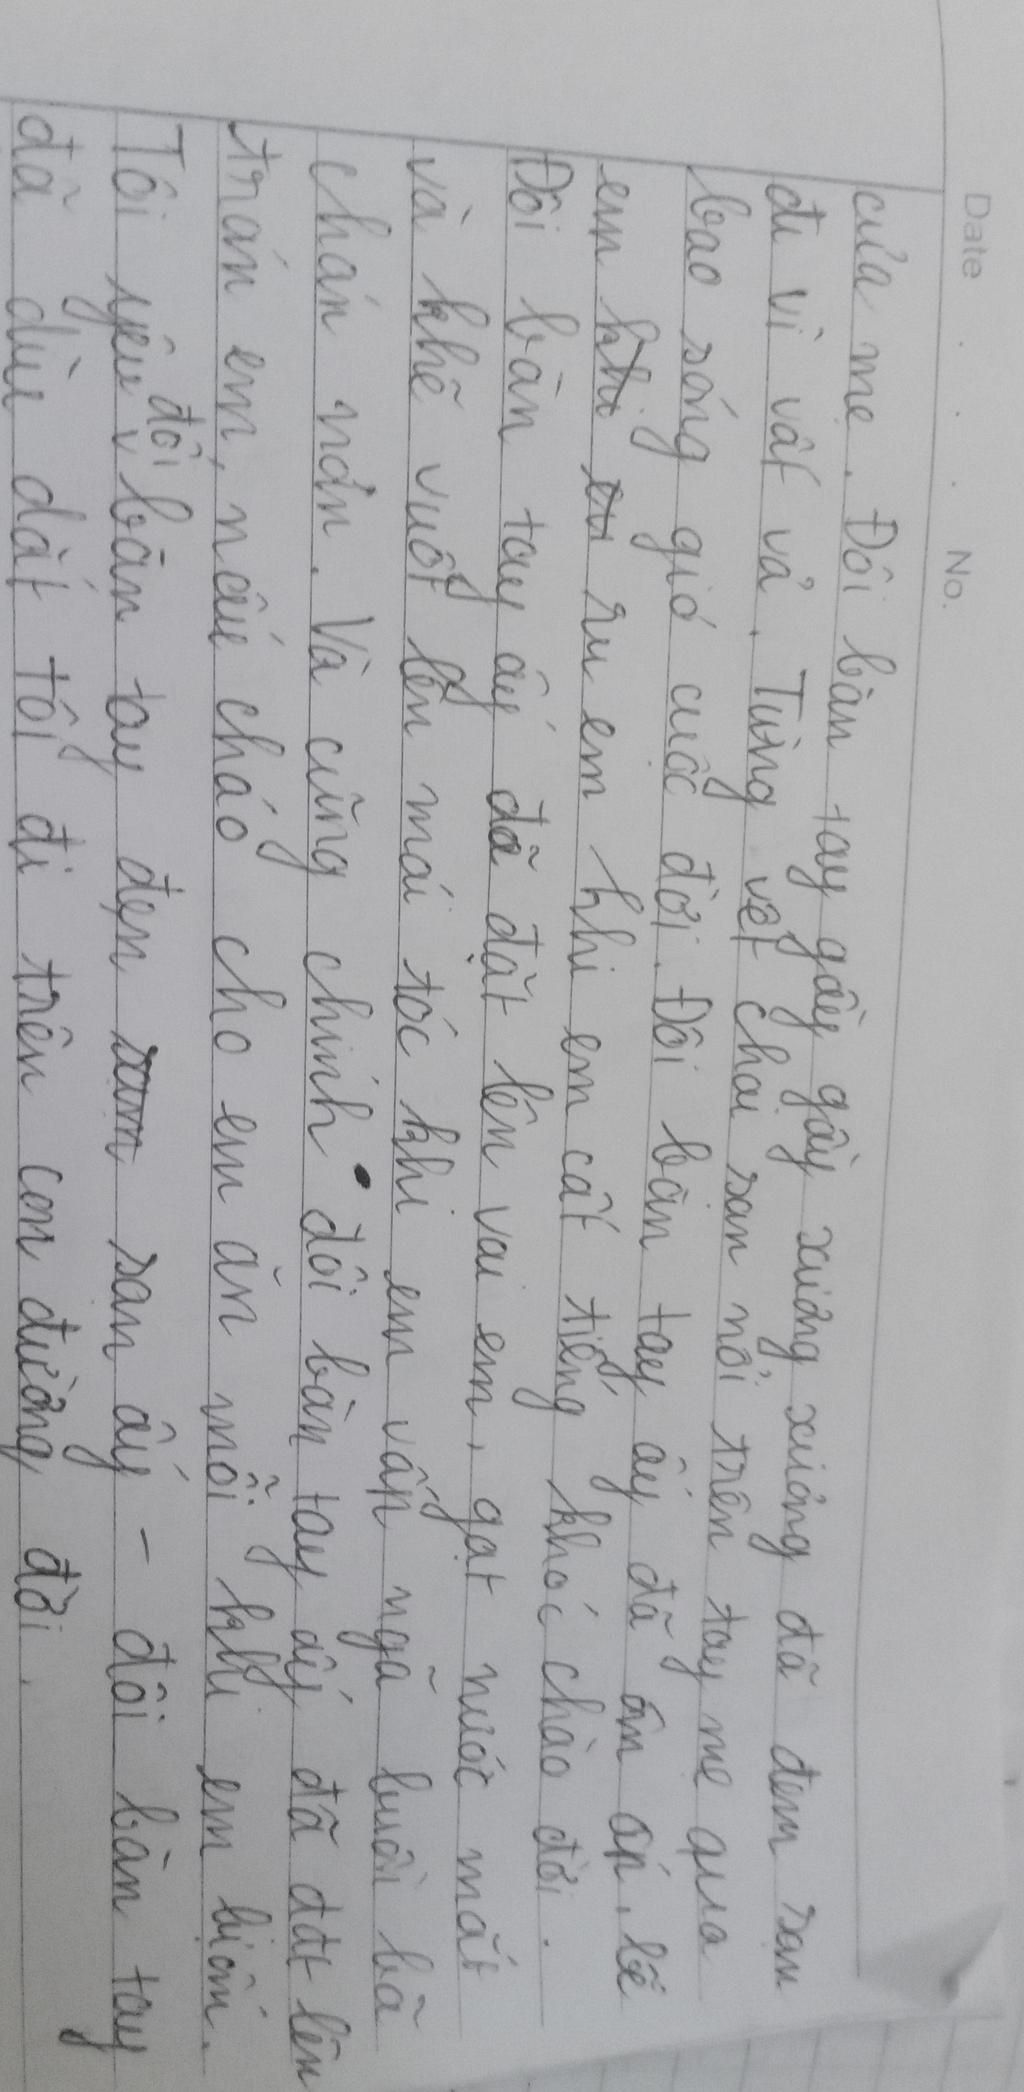 Date . . . No.
của mẹ. Đôi bàn tay gầy gầy xương xương đã đem sạn
đi vì vất vả. Từng vết chai sạn nổi trên tay mẹ qua
bao sóng gió cuộc đời. Đôi bàn tay ấy đã ôm ấp, bế
em khi em ru em khi em cất tiếng khóc chào đời.
Đôi bàn tay ấy đã đặt lên vai em, gạt nước mắt
và khẽ vuốt lên mái tóc khi em vấp ngã buồn bã
chán nản. Và cũng chính đôi bàn tay ấy đã đặt lên
trán em, nấu cháo cho em ăn mỗi khi em bị ốm.
Tôi yêu đôi bàn tay đen sạm sạn ấy - đôi bàn tay
đã dìu dắt tôi đi trên con đường đời.